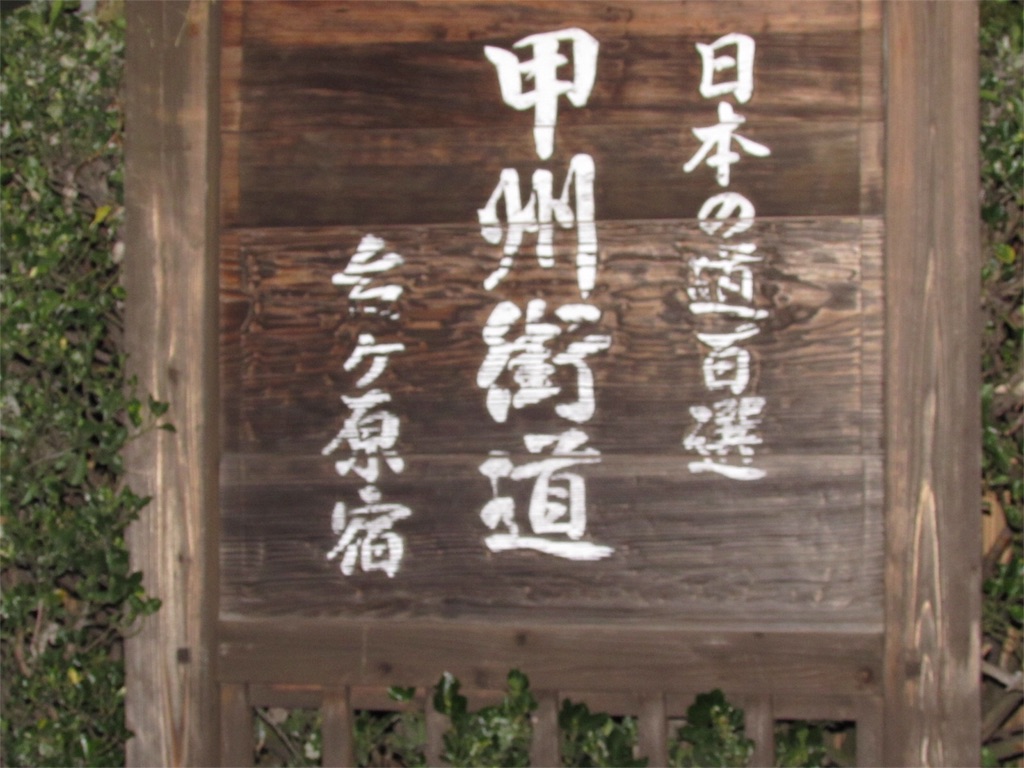 日本の道百選
甲州街道
台ケ原宿